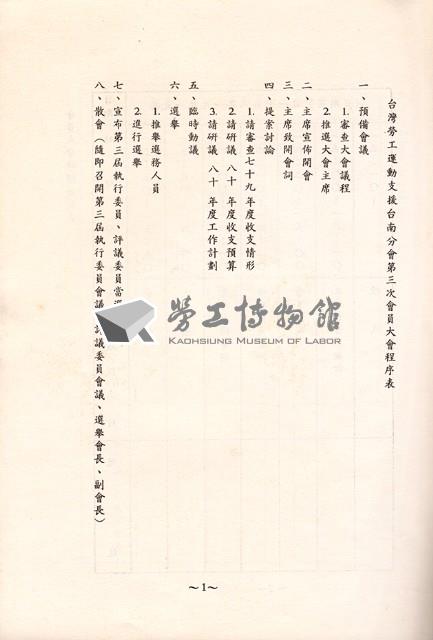 台灣勞工運動支援台南分會第三次會員大會程序表
一、預備會議
1.審查大會議程
2.推選大會主席
二、主席宣佈開會
三、主席致開會詞
四、提案討論
1.請審查七十九年度收支情形
2.請研議 八十 年度收支預算
3.請研議 八十 年度工作計劃
五、臨時動議
六、選舉
1.推舉選務人員
2.進行選舉
七、宣布第三屆執行委員、評議委員當選
八、散會（隨即召開第三屆執行委員會議、評議委員會議、選舉會長、副會長）
～1～
勞工博物館
KAOHSIUNG MUSEUM OF LABOR